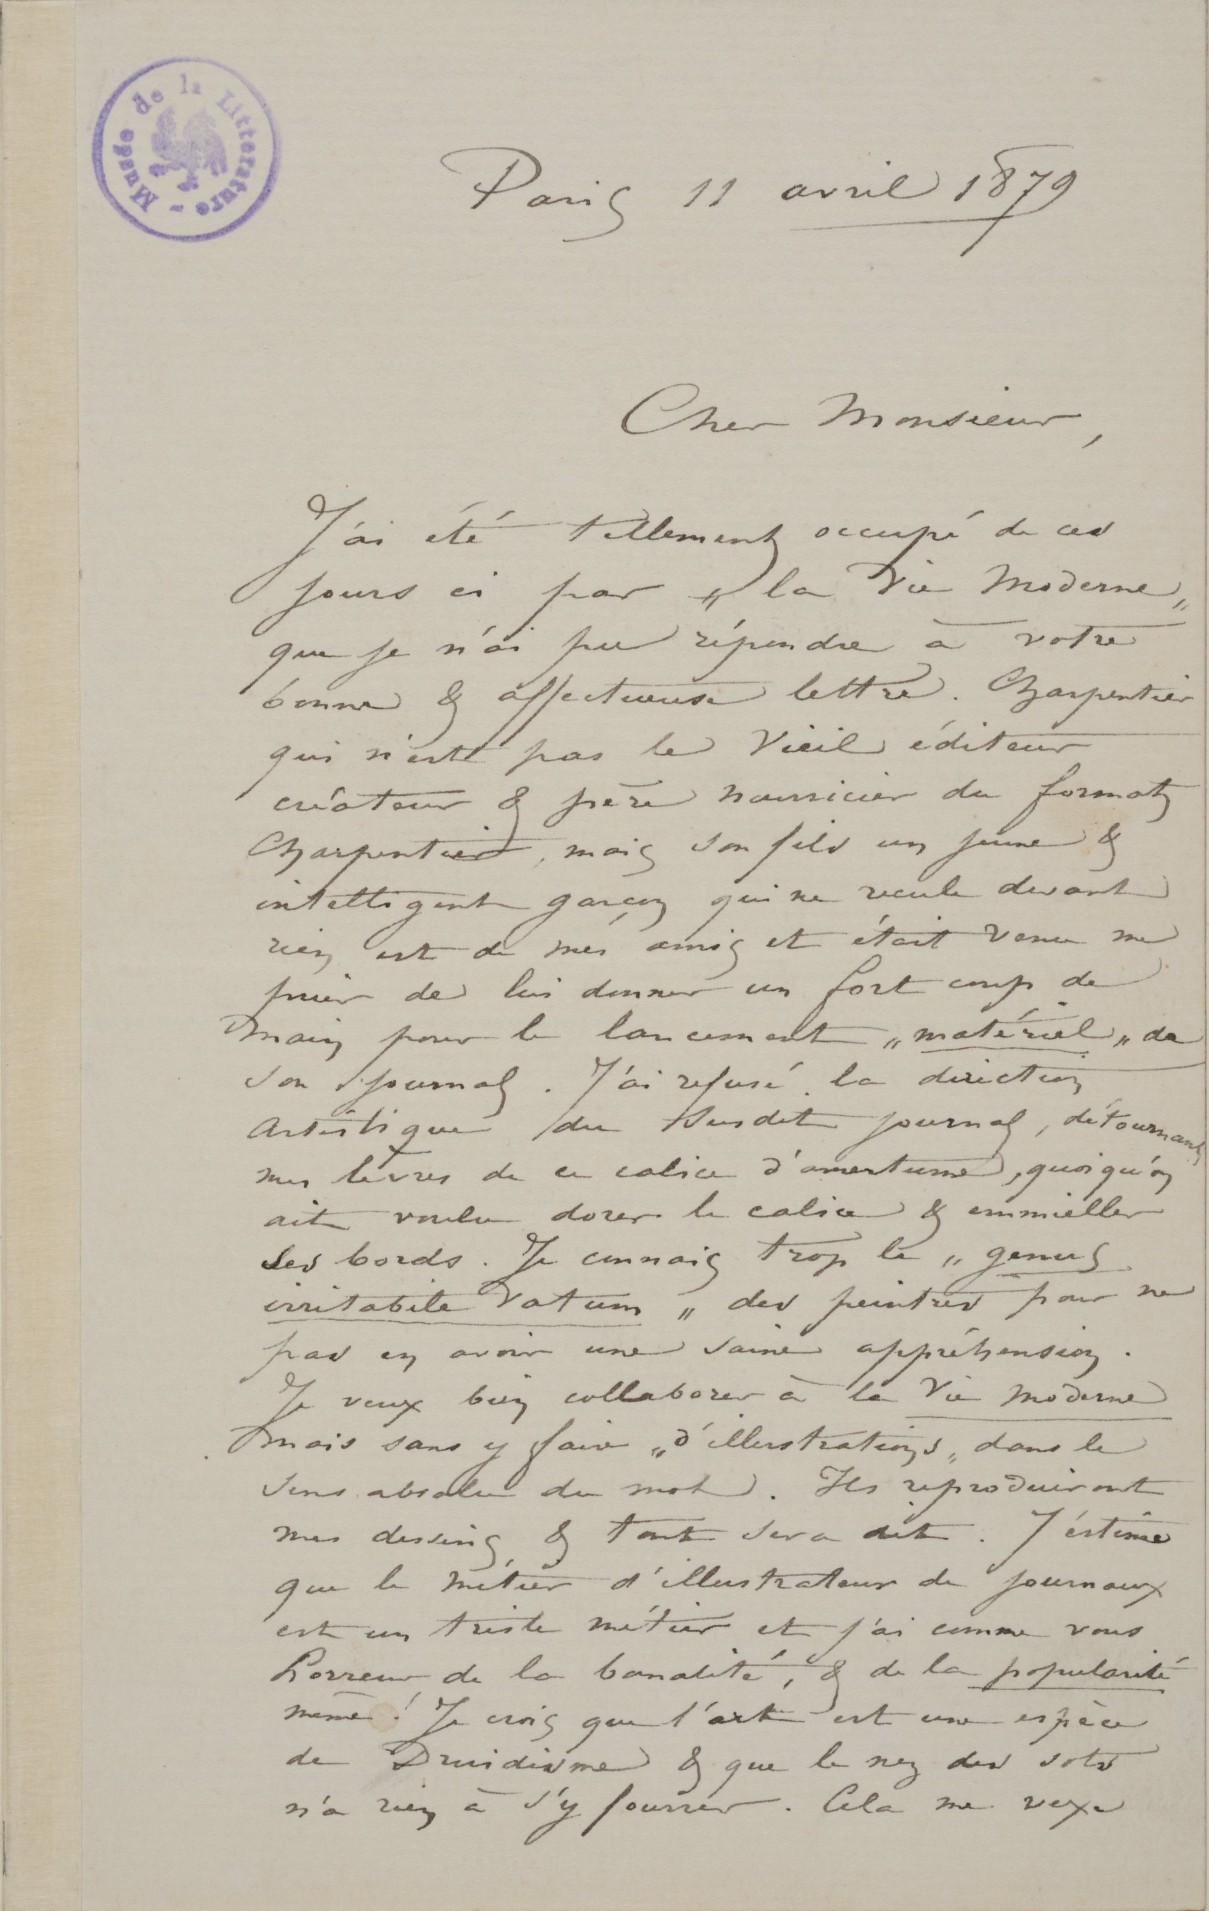 Musée de la Littérature -
Paris 11 avril 1879
Cher Monsieur,
J'ai été tellement occupé de ces
jours ci par „ la Vie Moderne „
que je n'ai pu répondre à votre
bonne & affectueuse lettre. Charpentier
qui n'est pas le Vieil éditeur
créateur & père nourricier du format
Charpentier, mais son fils un jeune &
intelligent garçon qui ne recule devant
rien est de mes amis et était venu me
prier de lui donner un fort coup de
main pour le lancement „ matériel „ de
son journal. J'ai refusé la direction
artistique du susdit journal, détournant
mes lèvres de ce calice d'amertume, quoiqu'on
ait voulu dorer le calice & emmieller
ses bords. Je connais trop le „ genus
irritabile vatum „ des peintres pour ne
pas en avoir une saine appréhension.
Je veux bien collaborer à la Vie Moderne
mais sans y faire „ d'illustrations „ dans le
sens absolu du mot. Ils reproduiront
mes dessins & tout sera dit. J'éstime
que le métier d'illustrateur de journaux
est un triste métier et j'ai comme vous
horreur de la banalité, & de la popularité
même! Je crois que l'art est une espèce
de Druidisme & que le nez des sots
n'a rien à s'y fourrer. Cela me vexe